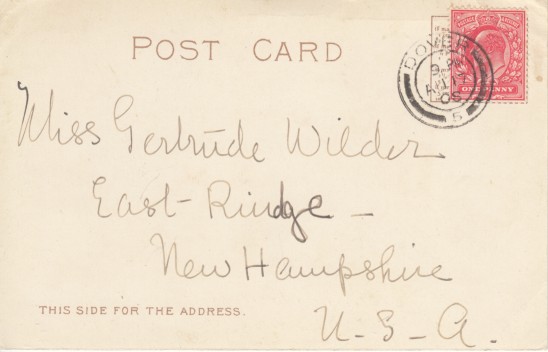 POST CARD
DOVER
5
ONE PENNY
Miss Gertrude Wilder
East-Rindge -
New Hampshire
U-S-A.
THIS SIDE FOR THE ADDRESS.